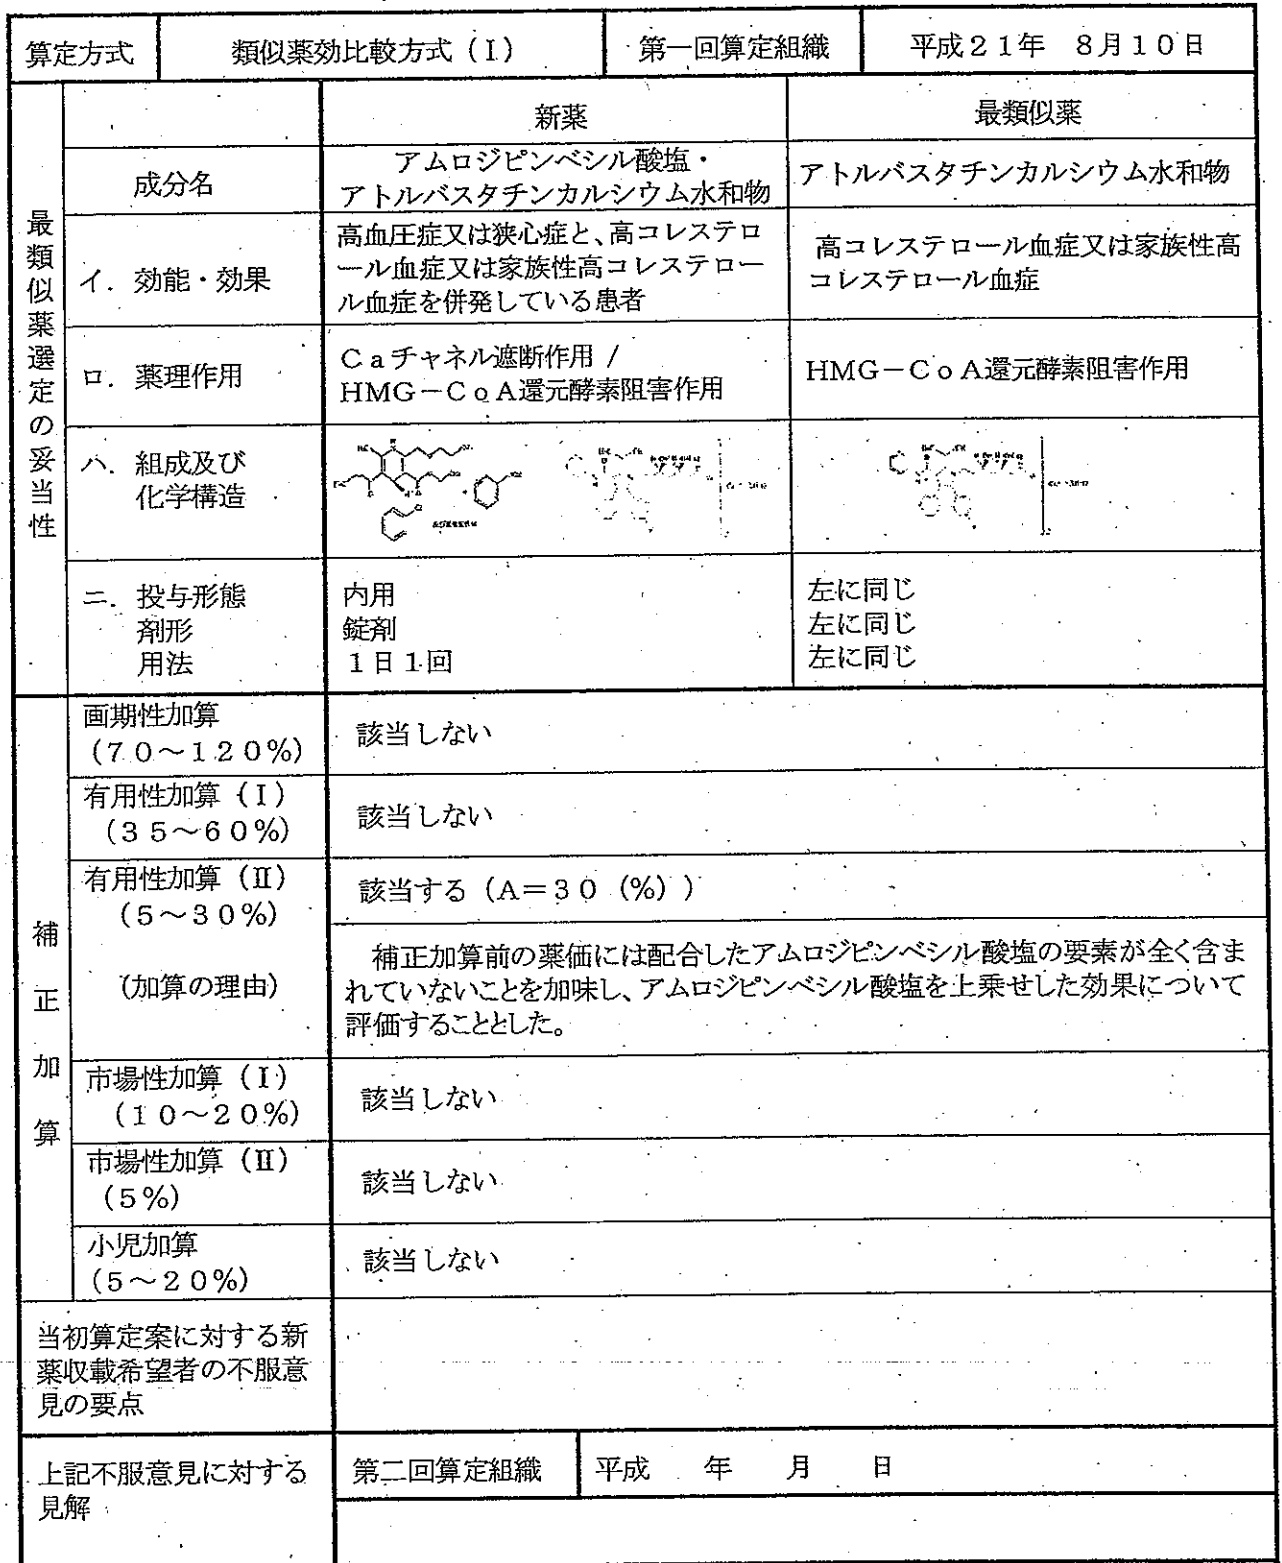 算定方式 類似薬効比較方式（Ⅰ） 第一回算定組織 平成２１年 ８月１０日
最類似薬選定の妥当性
新薬 最類似薬
成分名
アムロジピンベシル酸塩・
アトルバスタチンカルシウム水和物
アトルバスタチンカルシウム水和物
イ．効能・効果
高血圧症又は狭心症と、高コレステロ
ール血症又は家族性高コレステロー
ル血症を併発している患者
高コレステロール血症又は家族性高
コレステロール血症
ロ．薬理作用
Ｃａチャネル遮断作用 /
HMG－ＣｏＡ還元酵素阻害作用
HMG－ＣｏＡ還元酵素阻害作用
ハ．組成及び
化学構造
ニ．投与形態
剤形
用法
内用
錠剤
１日１回
左に同じ
左に同じ
左に同じ
補正加算
画期性加算
（７０～１２０%）
該当しない
有用性加算（Ⅰ）
（３５～６０%）
該当しない
有用性加算（Ⅱ）
（５～３０%）
該当する（Ａ＝３０（%））
（加算の理由）
補正加算前の薬価には配合したアムロジピンベシル酸塩の要素が全く含ま
れていないことを加味し、アムロジピンベシル酸塩を上乗せした効果について
評価することとした。
市場性加算（Ⅰ）
（１０～２０%）
該当しない
市場性加算（Ⅱ）
（５%）
該当しない
小児加算
（５～２０%）
該当しない
当初算定案に対する新
薬収載希望者の不服意
見の要点
上記不服意見に対する
見解
第二回算定組織 平成 年 月 日